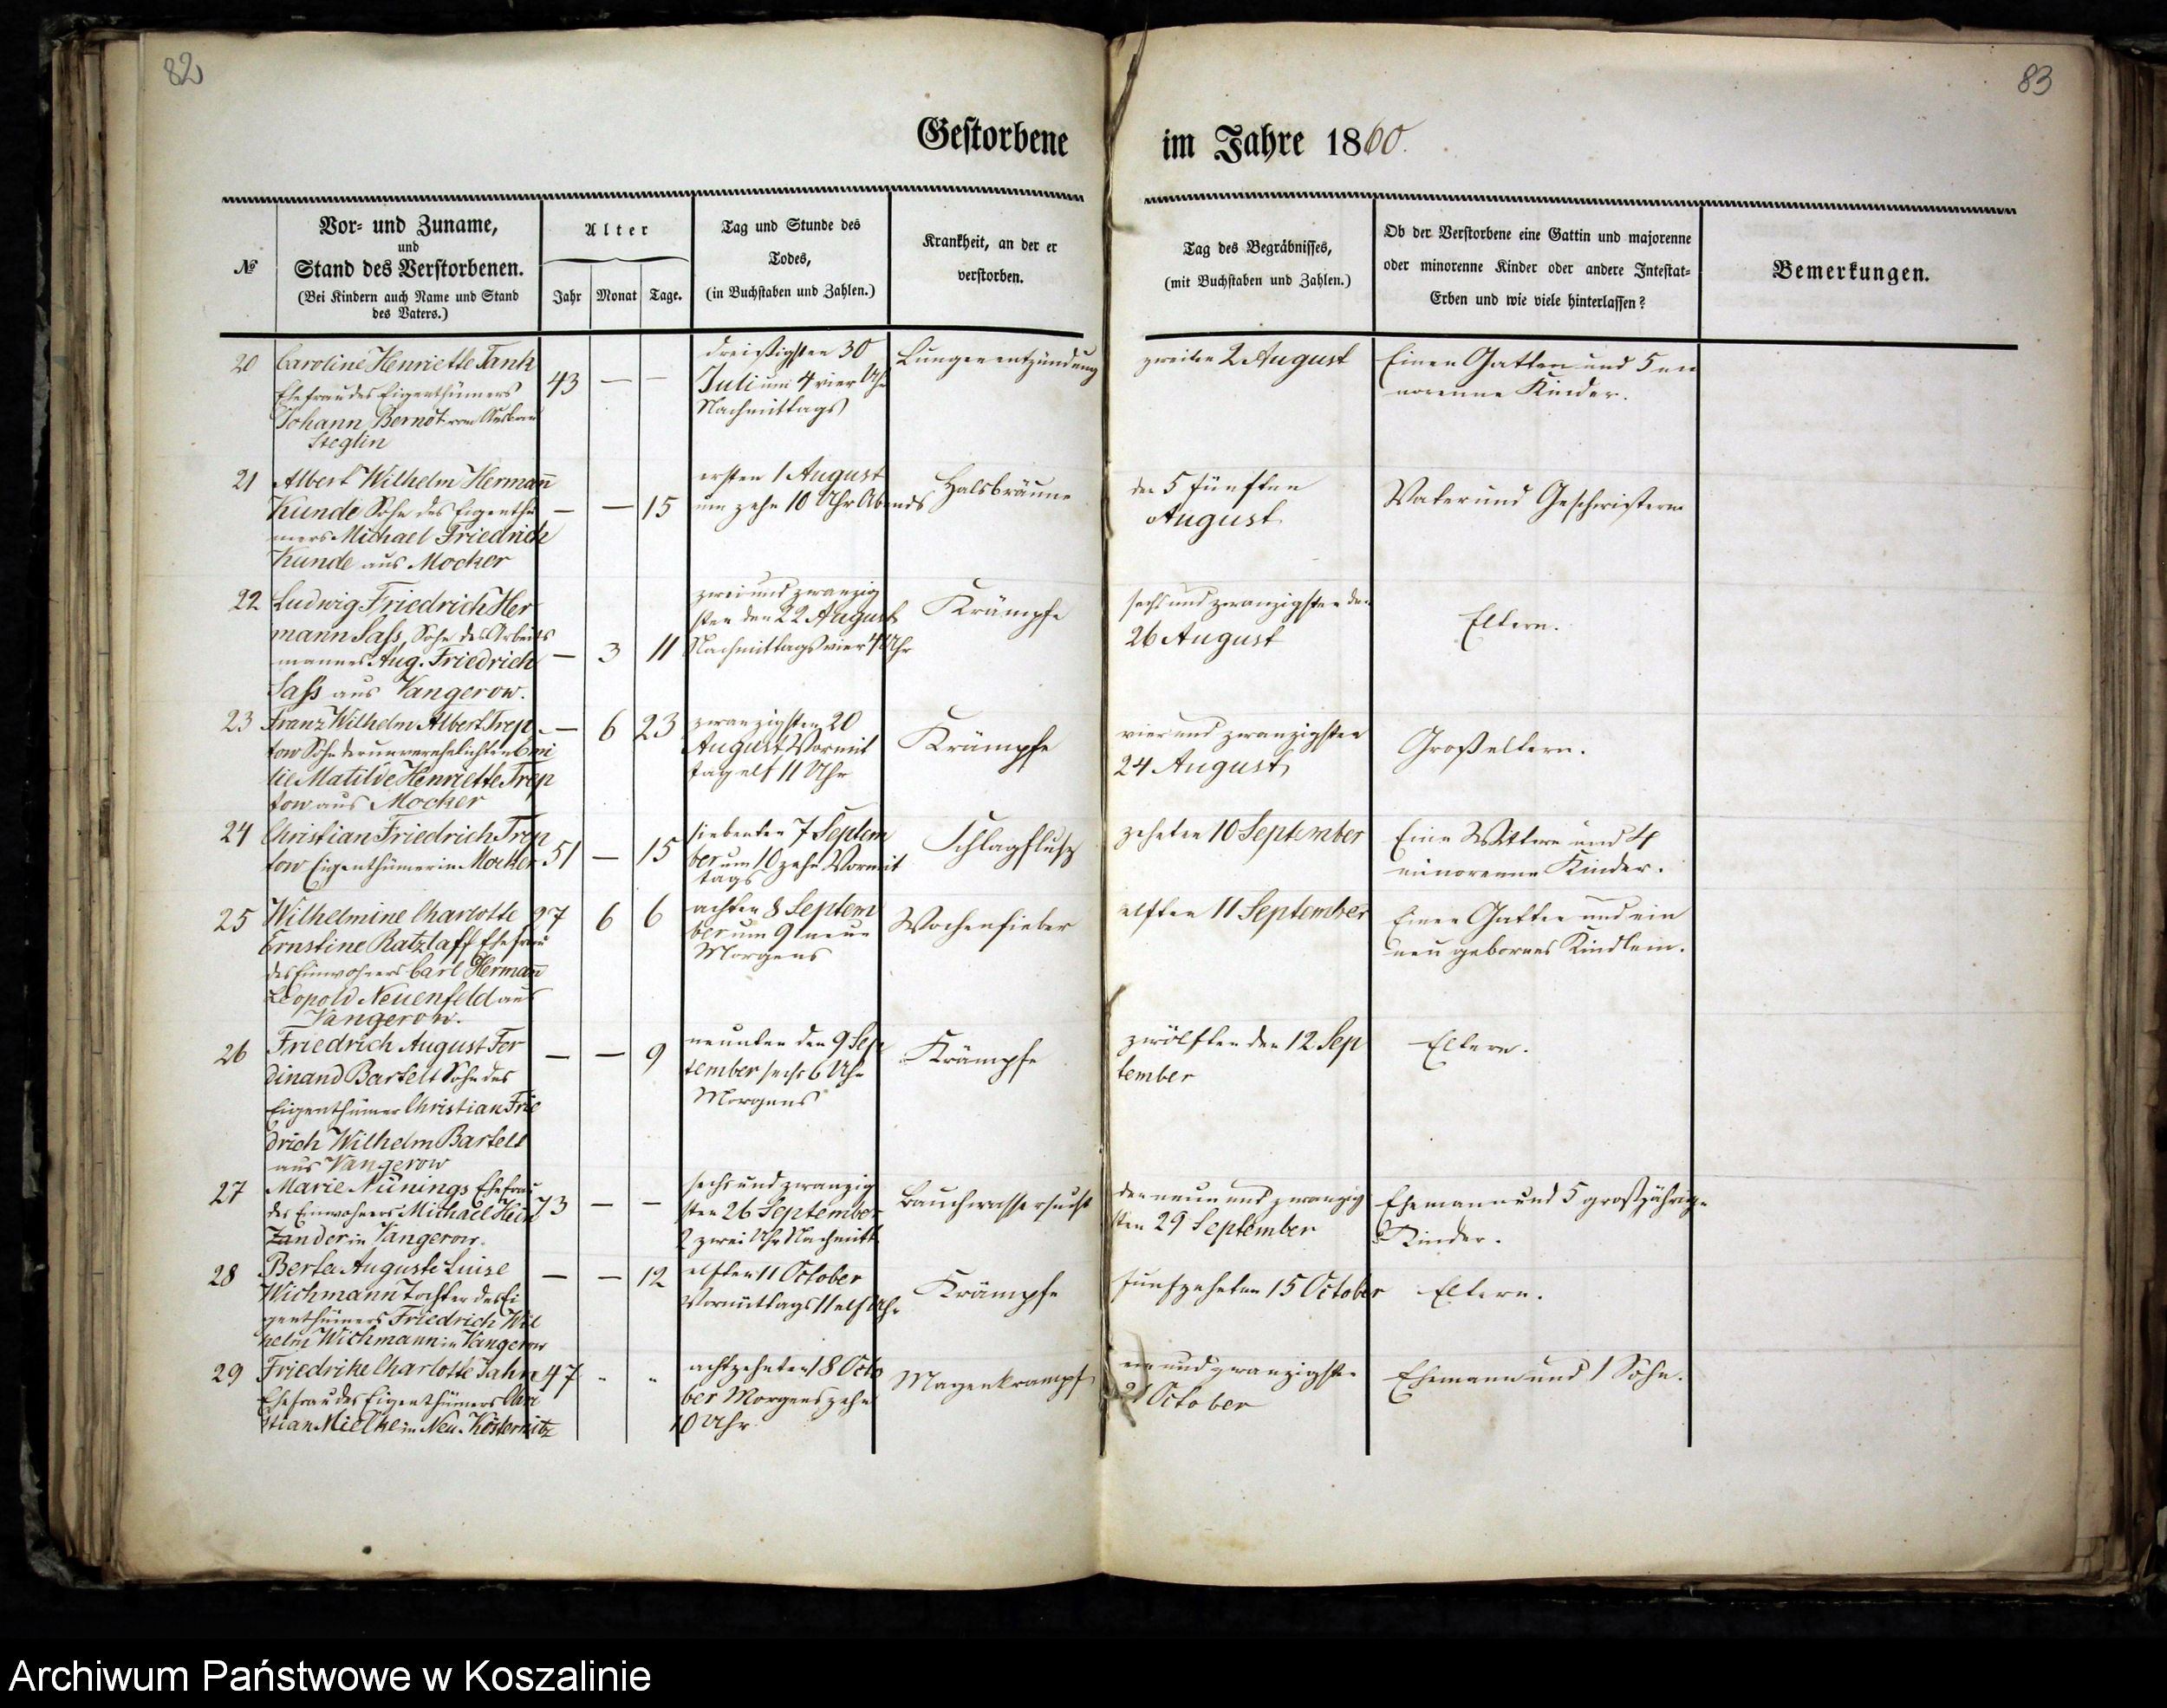 82
83
Gestorbene im Jahre 1860.
№
Vor- und Zuname,
und
Stand des Verstorbenen.
(Bei Kindern auch Name und Stand
des Vaters.)
Alter
Jahr Monat Tage.
Tag und Stunde des
Todes,
(in Buchstaben und Zahlen.)
Krankheit, an der er
verstorben.
Tag des Begräbnisses,
(mit Buchstaben und Zahlen.)
Ob der Verstorbene eine Gattin und majorenne
oder minorenne Kinder oder andere Intestat-
Erben und wie viele hinterlassen?
Bemerkungen.
20
Caroline Henriette Tank
Ehefrau des Eigenthümers
Johann Berndt vom Ausbau
Steglin
43 — —
dreißigsten 30
Juli um 4 vier Uhr
Nachmittags
Lungenentzündung
zweiten 2 August
Einen Gatten und 5
norenne Kinder.
21
Albert Wilhelm Hermann
Kunde Sohn des Eigenthü
mers Michael Friedrich
Kunde aus Mocker
— — 15
ersten 1 August
um zehn 10 Uhr Abends
Halsbräune
den 5 fünften
August
Vater und Geschwister
22
Ludwig Friedrich Her
mann Saß, Sohn des Arbeits
mannes Aug. Friedrich
Saß aus Vangerow.
— 3 11
zwei und zwanzig
sten den 22 August
Nachmittags vier 4 Uhr
Krämpfe
sechs und zwanzigsten den
26 August
Eltern.
23
Franz Wilhelm Albert Trep
tow Sohn der unverehelichten Emi
lie Matilde Henriette Trep
tow aus Mocker
— 6 23
zwanzigsten 20
August Vormit
tag elf 11 Uhr
Krämpfe
vier und zwanzigsten
24 August
Großeltern.
24
Christian Friedrich Trep
tow Eigenthümer in Mocker
51 — 15
siebenten 7 Septem
ber um 10 zehn Vormit
tags
Schlagfluß
zehnten 10 September
Eine Wittwe und 4
minorenne Kinder.
25
Wilhelmine Charlotte
Ernstine Ratzlaff Ehefrau
des Einwohners Carl Hermann
Leopold Neuenfeld aus
Vangerow.
27 6 6
achten 8 Septem
ber um 9 neun
Morgens
Wochenfieber
elften 11 September
Einen Gatten und ein
neu gebornes Kindlein.
26
Friedrich August Fer
dinand Bartelt Sohn des
Eigenthümer Christian Frie
drich Wilhelm Bartelt
aus Vangerow
— — 9
neunten den 9 Sep
tember sechs 6 Uhr
Morgens
Krämpfe
zwölften den 12 Sep
tember
Eltern.
27
Marie Nünings Ehefrau
des Einwohners Michael Hein
Zander in Vangerow.
73 — —
sechs und zwanzig
sten 26 September
2 zwei Uhr Nachmitt.
Bauchwassersucht
den neun und zwanzig
sten 29 September
Ehemann und 5 großjährige
Kinder.
28
Berta Auguste Luise
Wichmann Tochter des Ei
genthümers Friedrich Wil
helm Wichmann in Vangerow
— — 12
elften 11 October
Vormittags 11 elf Uhr
Krämpfe
fünfzehnten 15 October
Eltern.
29
Friedrike Charlotte Jahn
Ehefrau des Eigenthümers Chri
stian Mielke in Neu-Kösternitz
47 " "
achtzehnten 18 Octo
ber Morgens zehn
10 Uhr
Magenkrampf
ein und zwanzigsten
21 October
Ehemann und 1 Sohn.
Archiwum Państwowe w Koszalinie